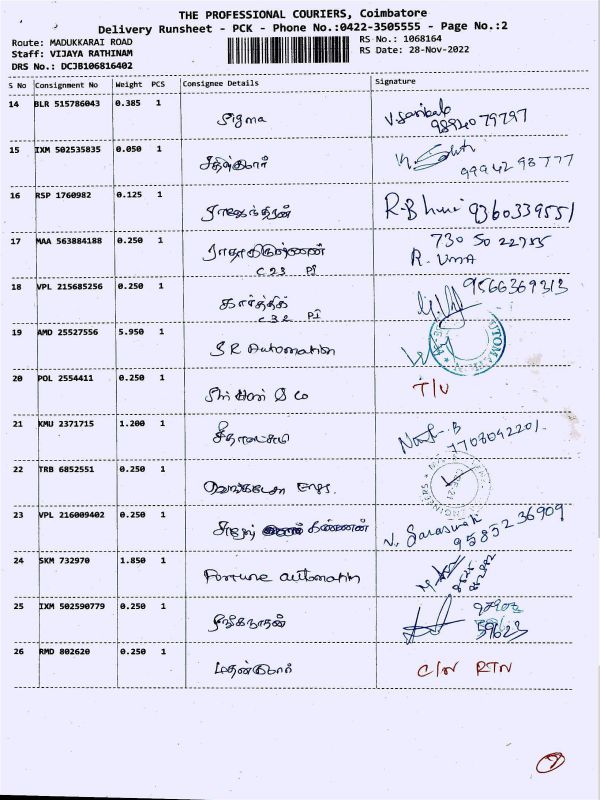 THE PROFESSIONAL COURIERS, Coimbatore
Delivery Runsheet - PCK - Phone No.:0422-3505555 - Page No.:2
Route: MADUKKARAI ROAD
Staff: VIJAYA RATHINAM
DRS No.: DCJB106816402
RS No.: 1068164
RS Date: 28-Nov-2022
S No Consignment No Weight PCS Consignee Details Signature
14 BLR 515786043 0.385 1 Sigma
9894079797
15 IXM 502535835 0.050 1 சதிஷ்குமார்
9994298777
16 RSP 1760982 0.125 1 ராஜேந்திரன் 9360339551
17 MAA 563884188 0.250 1 ராதாகிருஷ்ணன் 730 50 22755
R. UMA
C 23 PI
18 VPL 215685256 0.250 1 கார்த்திக் 9566369313
C 32 PI
19 AMD 25527556 5.950 1 SR Automation
20 POL 2554411 0.250 1 T/N
21 KMU 2371715 1.200 1 சீதாலட்சுமி
7708042201
22 TRB 6852551 0.250 1
23 VPL 216009402 0.250 1 கண்ணன் V. Saraswathi
95852 36909
24 SKM 732970 1.850 1 Fortune automatin
25 IXM 502590779 0.250 1
59623
26 RMD 802620 0.250 1 மதன்குமார் C/N RTN